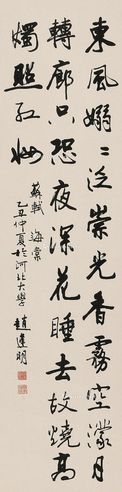 東風嫋〻泛崇光香霧空濛月
轉廊只恐夜深花睡去故燒高
燭照紅妝
蘇軾 海棠
乙丑仲夏於河北大學 趙選明